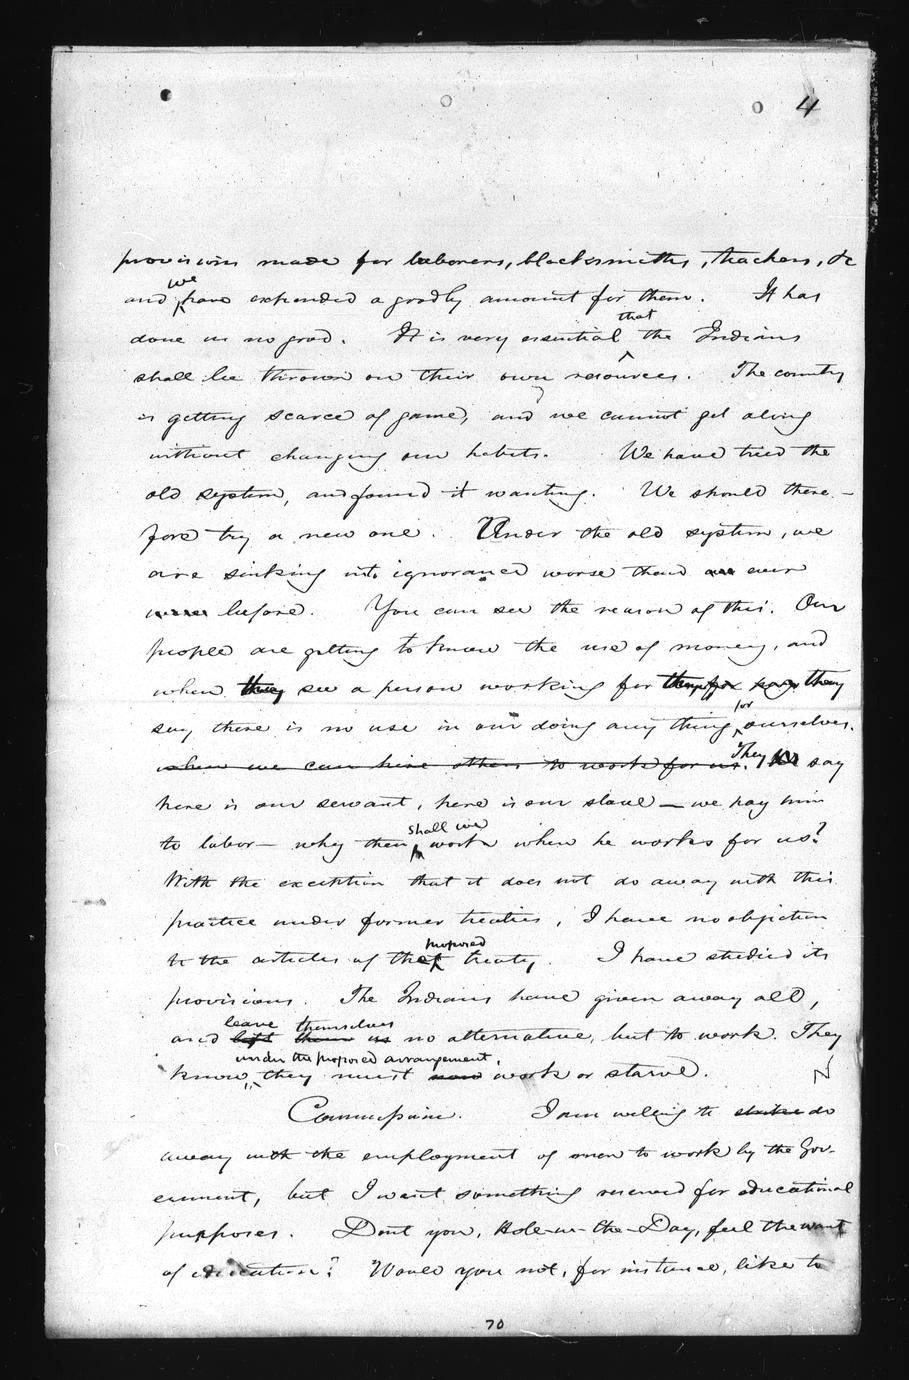 4
provisions made for laborers, blacksmiths, teachers, &c
and we have expended a goodly amount for them. It has
done us no good. It is very essential that the Indians
shall be thrown on their own resources. The country
is getting scarce of game, and we cannot get along
without changing our habits. We have tried the
old system, and found it wanting. We should there-
fore try a new one. Under the old system, we
are sinking into ignorance worse than ever
before. You can see the reason of this. Our
people are getting to know the use of money, and
when they see a person working for they
say there is no use in our doing any thing for ourselves.
when we can hire others to work for us. They say
here is our servant, here is our slave — we pay him
to labor — why then shall we work when he works for us?
With the exception that it does not do away with this
practice under former treaties, I have no objection
to the articles of the proposed treaty. I have studied its
provisions. The Indians have given away all,
and left them us leave themselves no alternative, but to work. They
know, under the proposed arrangement, they must now work or starve.
Commissioner. I am willing to strike do
away with the employment of men to work by the Gov-
ernment, but I want something reserved for educational
purposes. Dont you, Hole-in-the-Day, feel the want
of education? Would you not, for instance, like to
70